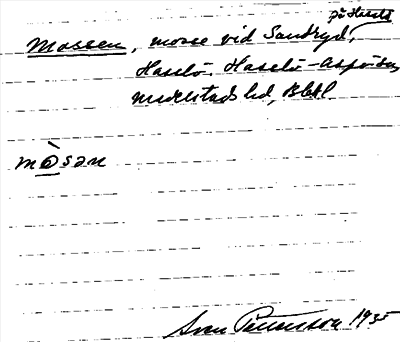 på Hasslö
Mossen, mosse vid Sandryd,
Hasslö. Hasslö-Aspöns
Medelstads hd, Blekl.
mòsən
Sven Pettersson 1935